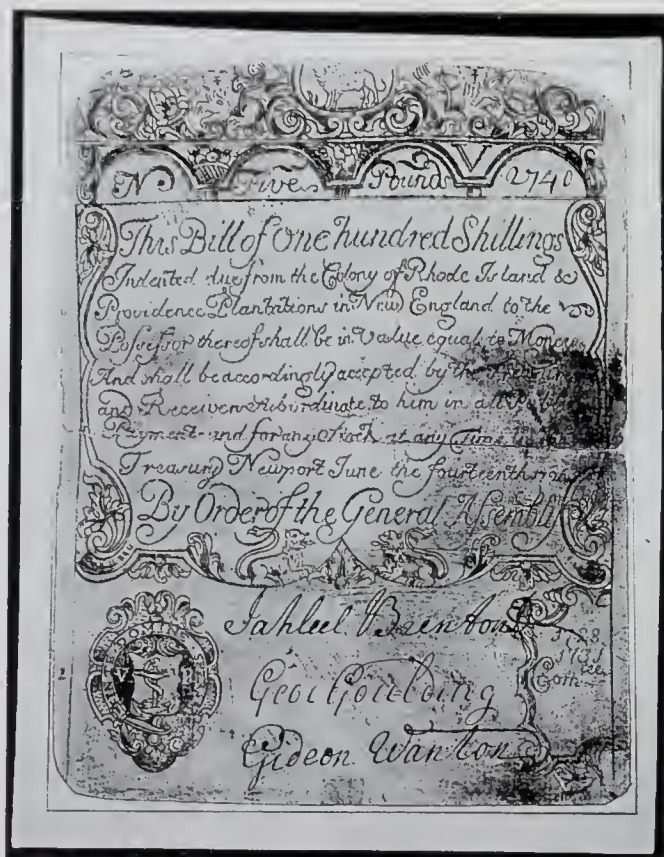 No Five Pounds V 2740
This Bill of One hundred Shillings
Indented due from the Colony of Rhode Island &
Providence Plantations in New England to the
Possessor thereof shall be in Value equal to Money
And shall be accordingly accepted by the
and Receivers Subordinate to him in all
Payment and for any Stock at any Time in the
Treasury Newport June the fourteenth
By Order of the General Assembly
Jahleel Brenton
Geo: Goulding
Gideon Wanton
1731
Com
tee